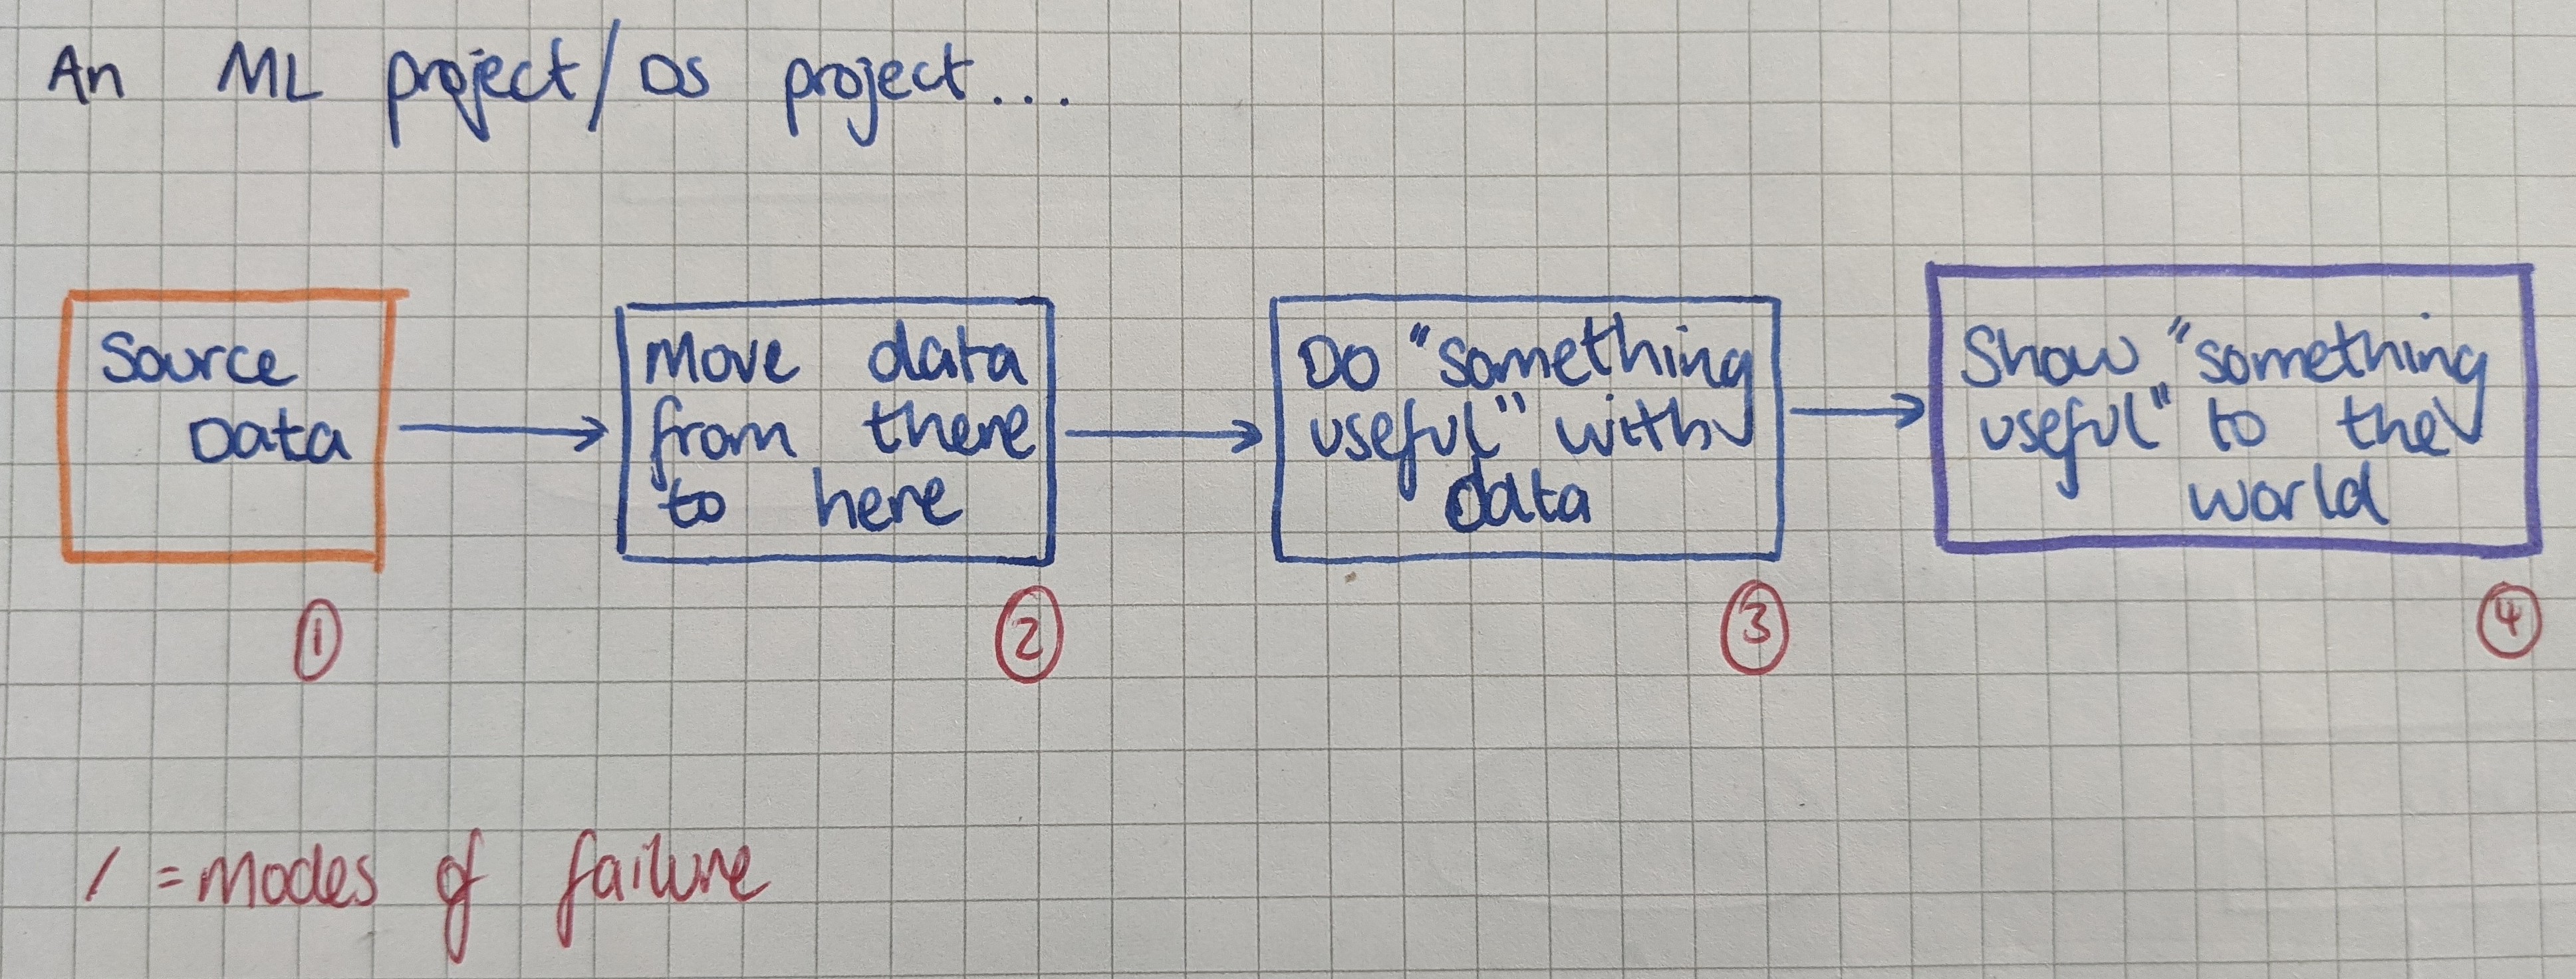 An ML project/DS project...
Source
Data
Move data
from there
to here
Do "something
useful" with
data
Show "something
useful" to the
world
1
2
3
4
/ = modes of failure